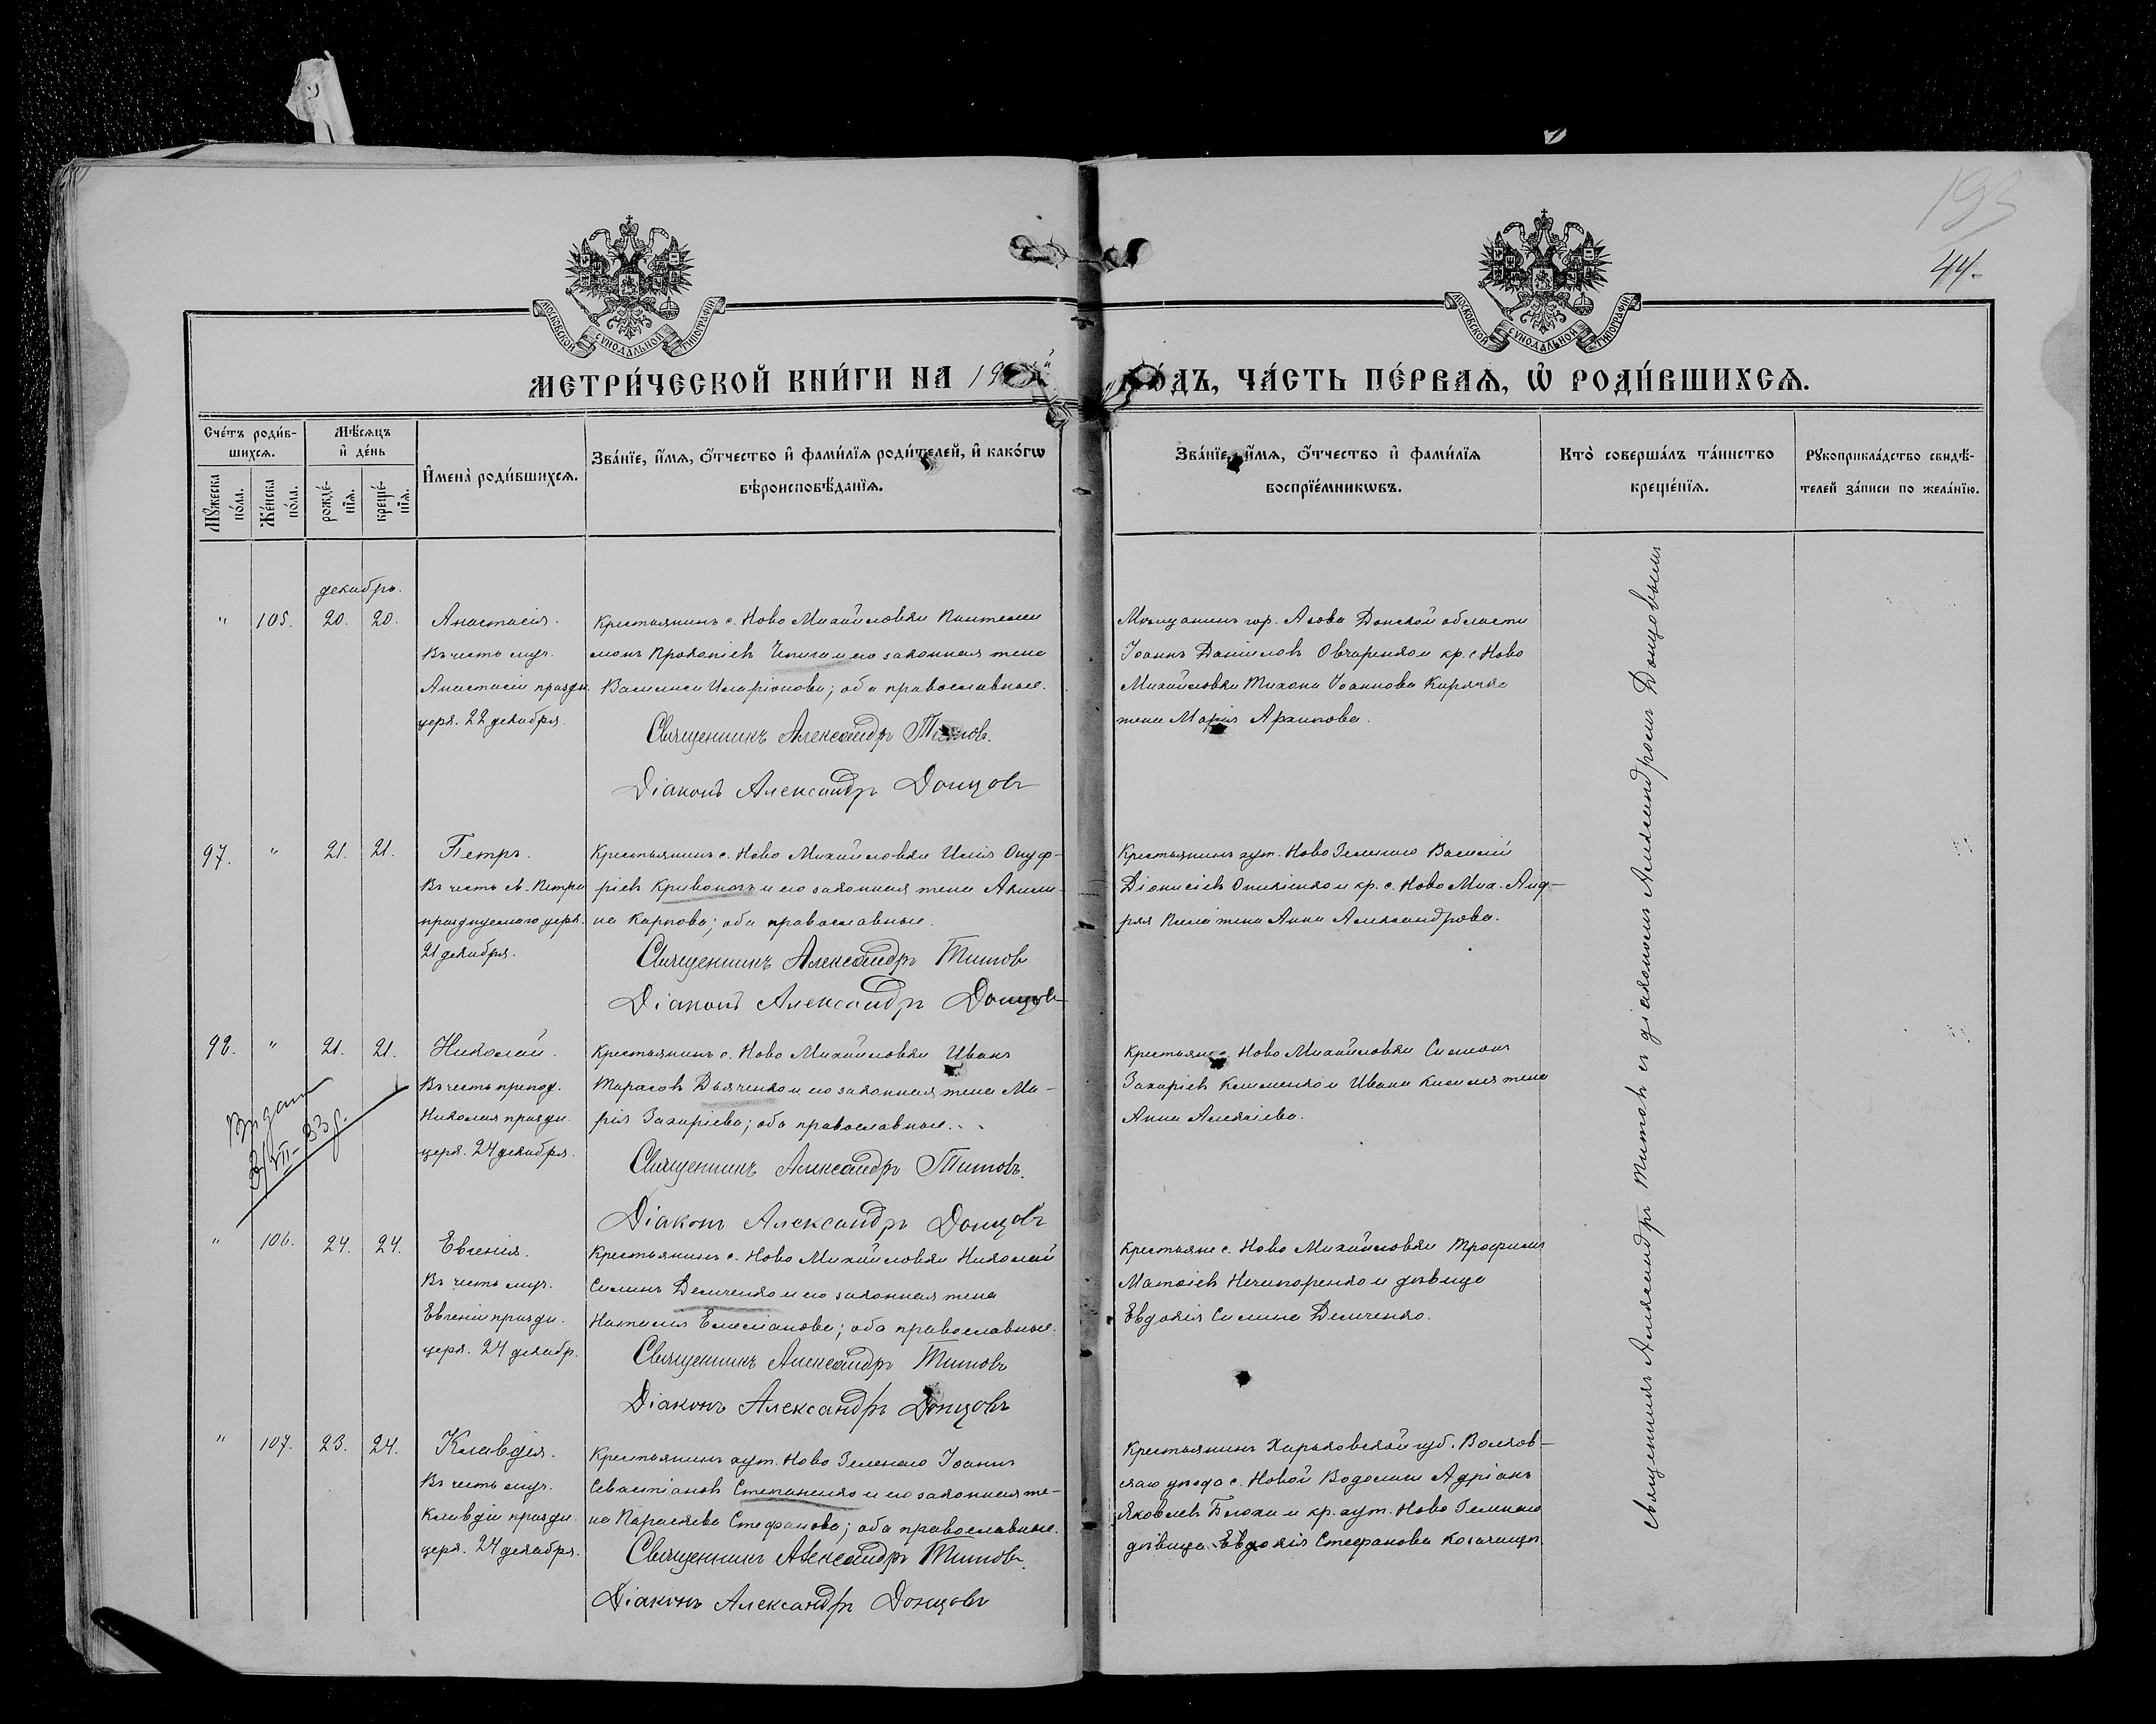 193
44.
МОСКОВСКОЙ СѴНОДАЛЬНОЙ ТИПОГРАФІИ
МОСКОВСКОЙ СѴНОДАЛЬНОЙ ТИПОГРАФІИ
МЕТРИ́ЧЕСКОЙ КНИ́ГИ НА 19
ГО́ДЪ, ЧА́СТЬ ПЕ́РВАѦ, Ѡ҆ РОДИ́ВШИХСѦ.
Сче́тъ роди́вшихсѧ.
Мꙋ́жеска по́ла.
Же́нска по́ла.
Мѣ́сѧцъ и҆ де́нь
рожде́нїѧ.
креще́нїѧ.
И҆мена̀ роди́вшихсѧ.
Зва́нїе, и҆́мѧ, ѻ҆́тчество и҆ фами́лїѧ роди́телей, и҆ како́гѡ
вѣроисповѣ́данїѧ.
Зва́нїе, и҆́мѧ, ѻ҆́тчество и҆ фами́лїѧ
воспрїе́мникѡвъ.
Кто̀ соверша́лъ та́инство
креще́нїѧ.
Рꙋкоприкла́дство свидѣ́-
телей за́писи по жела́нїю.
декабрь.
" 105. 20. 20. Анастасія.
Въ честь муч.
Анастасіи праздн.
церк. 22 декабря.
Крестьянинъ с. Ново Михайловки Пантелеи
монъ Прокопіевъ и его законная жена
Василиса Иларіонова; оба православные.
Священникъ Александръ Титовъ.
Діаконъ Александръ Донцовъ
Мѣщанинъ гор. Азова Донской области
Іоаннъ Даніиловъ Овчаренко и кр. с. Ново
Михайловки Тихона Іоаннова
жена Марія Архипова.
97. " 21. 21. Петръ.
Въ честь св. Петра
празднуемаго церк.
21 декабря.
Крестьянинъ с. Ново Михайловки Илія Онуф-
ріевъ Кривоносъ и его законная жена Акили-
на Карпова; оба православные.
Священникъ Александръ Титовъ
Діаконъ Александръ Донцовъ
Крестьянинъ хут. Ново Зеленаго Василій
Діонисіевъ и кр. с. Ново Мих. Анд-
рея жена Анна Александрова.
98. " 21. 21. Николай.
Въ честь препод.
Николая праздн.
церк. 24 декабря.
Выдан
3/VII-33 г.
Крестьянинъ с. Ново Михайловки Иванъ
Тарасовъ Дьяченко и его законная жена Ма-
рія Захаріева; оба православные.
Священникъ Александръ Титовъ.
Діаконъ Александръ Донцовъ
Крестьяне с. Ново Михайловки Симеонъ
Захаріевъ Клименко и Ивана Киселя жена
Анна Алексіева.
" 106. 24. 24. Евгенія.
Въ честь муч.
Евгеніи праздн.
церк. 24 декабр.
Крестьянинъ с. Ново Михайловки Николай
Силинъ Демченко и его законная жена
Наталія Емеліанова; оба православные.
Священникъ Александръ Титовъ
Діаконъ Александръ Донцовъ
Крестьяне с. Ново Михайловки Трофимъ
Матѳіевъ Нечипоренко и дѣвица
Евдокія Силина Демченко.
" 107. 23. 24. Клавдія.
Въ честь муч.
Клавдіи праздн.
церк. 24 декабря.
Крестьянинъ хут. Ново Зеленаго Іоаннъ
Севастіановъ Степаненко и его законная же-
на Параскева Стефанова; оба православные.
Священникъ Александръ Титовъ.
Діаконъ Александръ Донцовъ
Крестьянинъ Харьковской губ. Волков-
скаго уѣзда с. Новой Водолаги Адріанъ
Яковлевъ Блоха и кр. хут. Ново Зеленаго
дѣвица Евдокія Стефанова
Священникъ Александръ Титовъ съ діакономъ Александромъ Донцовымъ